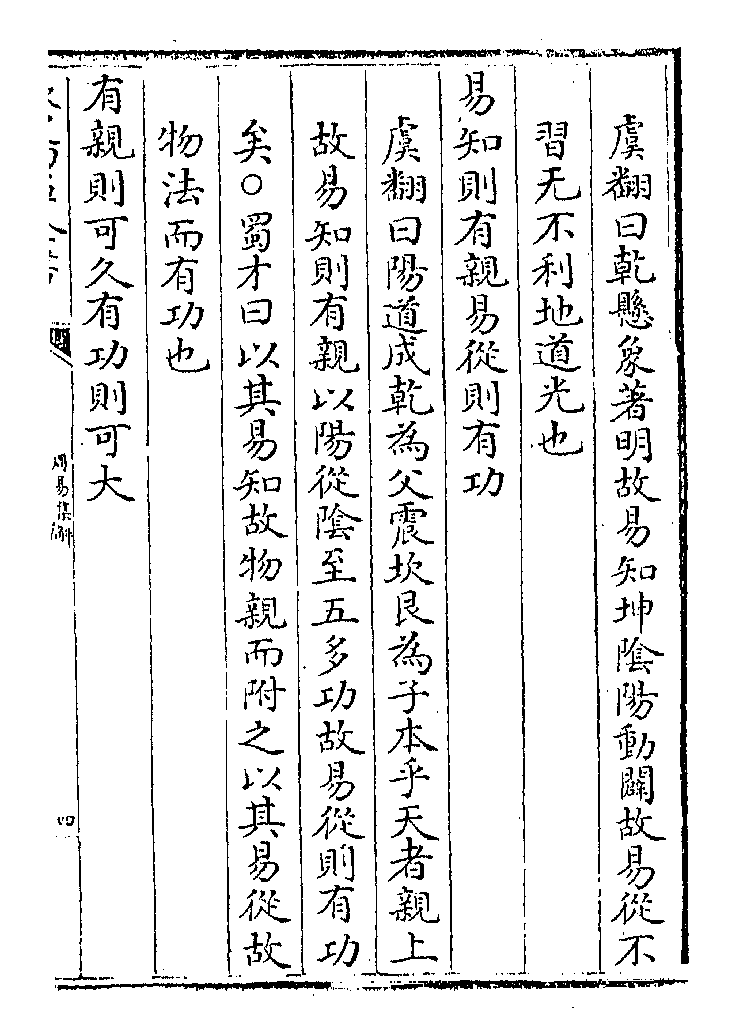 虞翻曰乾懸象著明故易知坤陰陽動闢故易從不
習无不利地道光也
易知則有親易從則有功
虞翻曰陽道成乾為父震坎艮為子本乎天者親上
故易知則有親以陽從陰至五多功故易從則有功
矣○蜀才曰以其易知故物親而附之以其易從故
物法而有功也
有親則可久有功則可大
周易集解
四